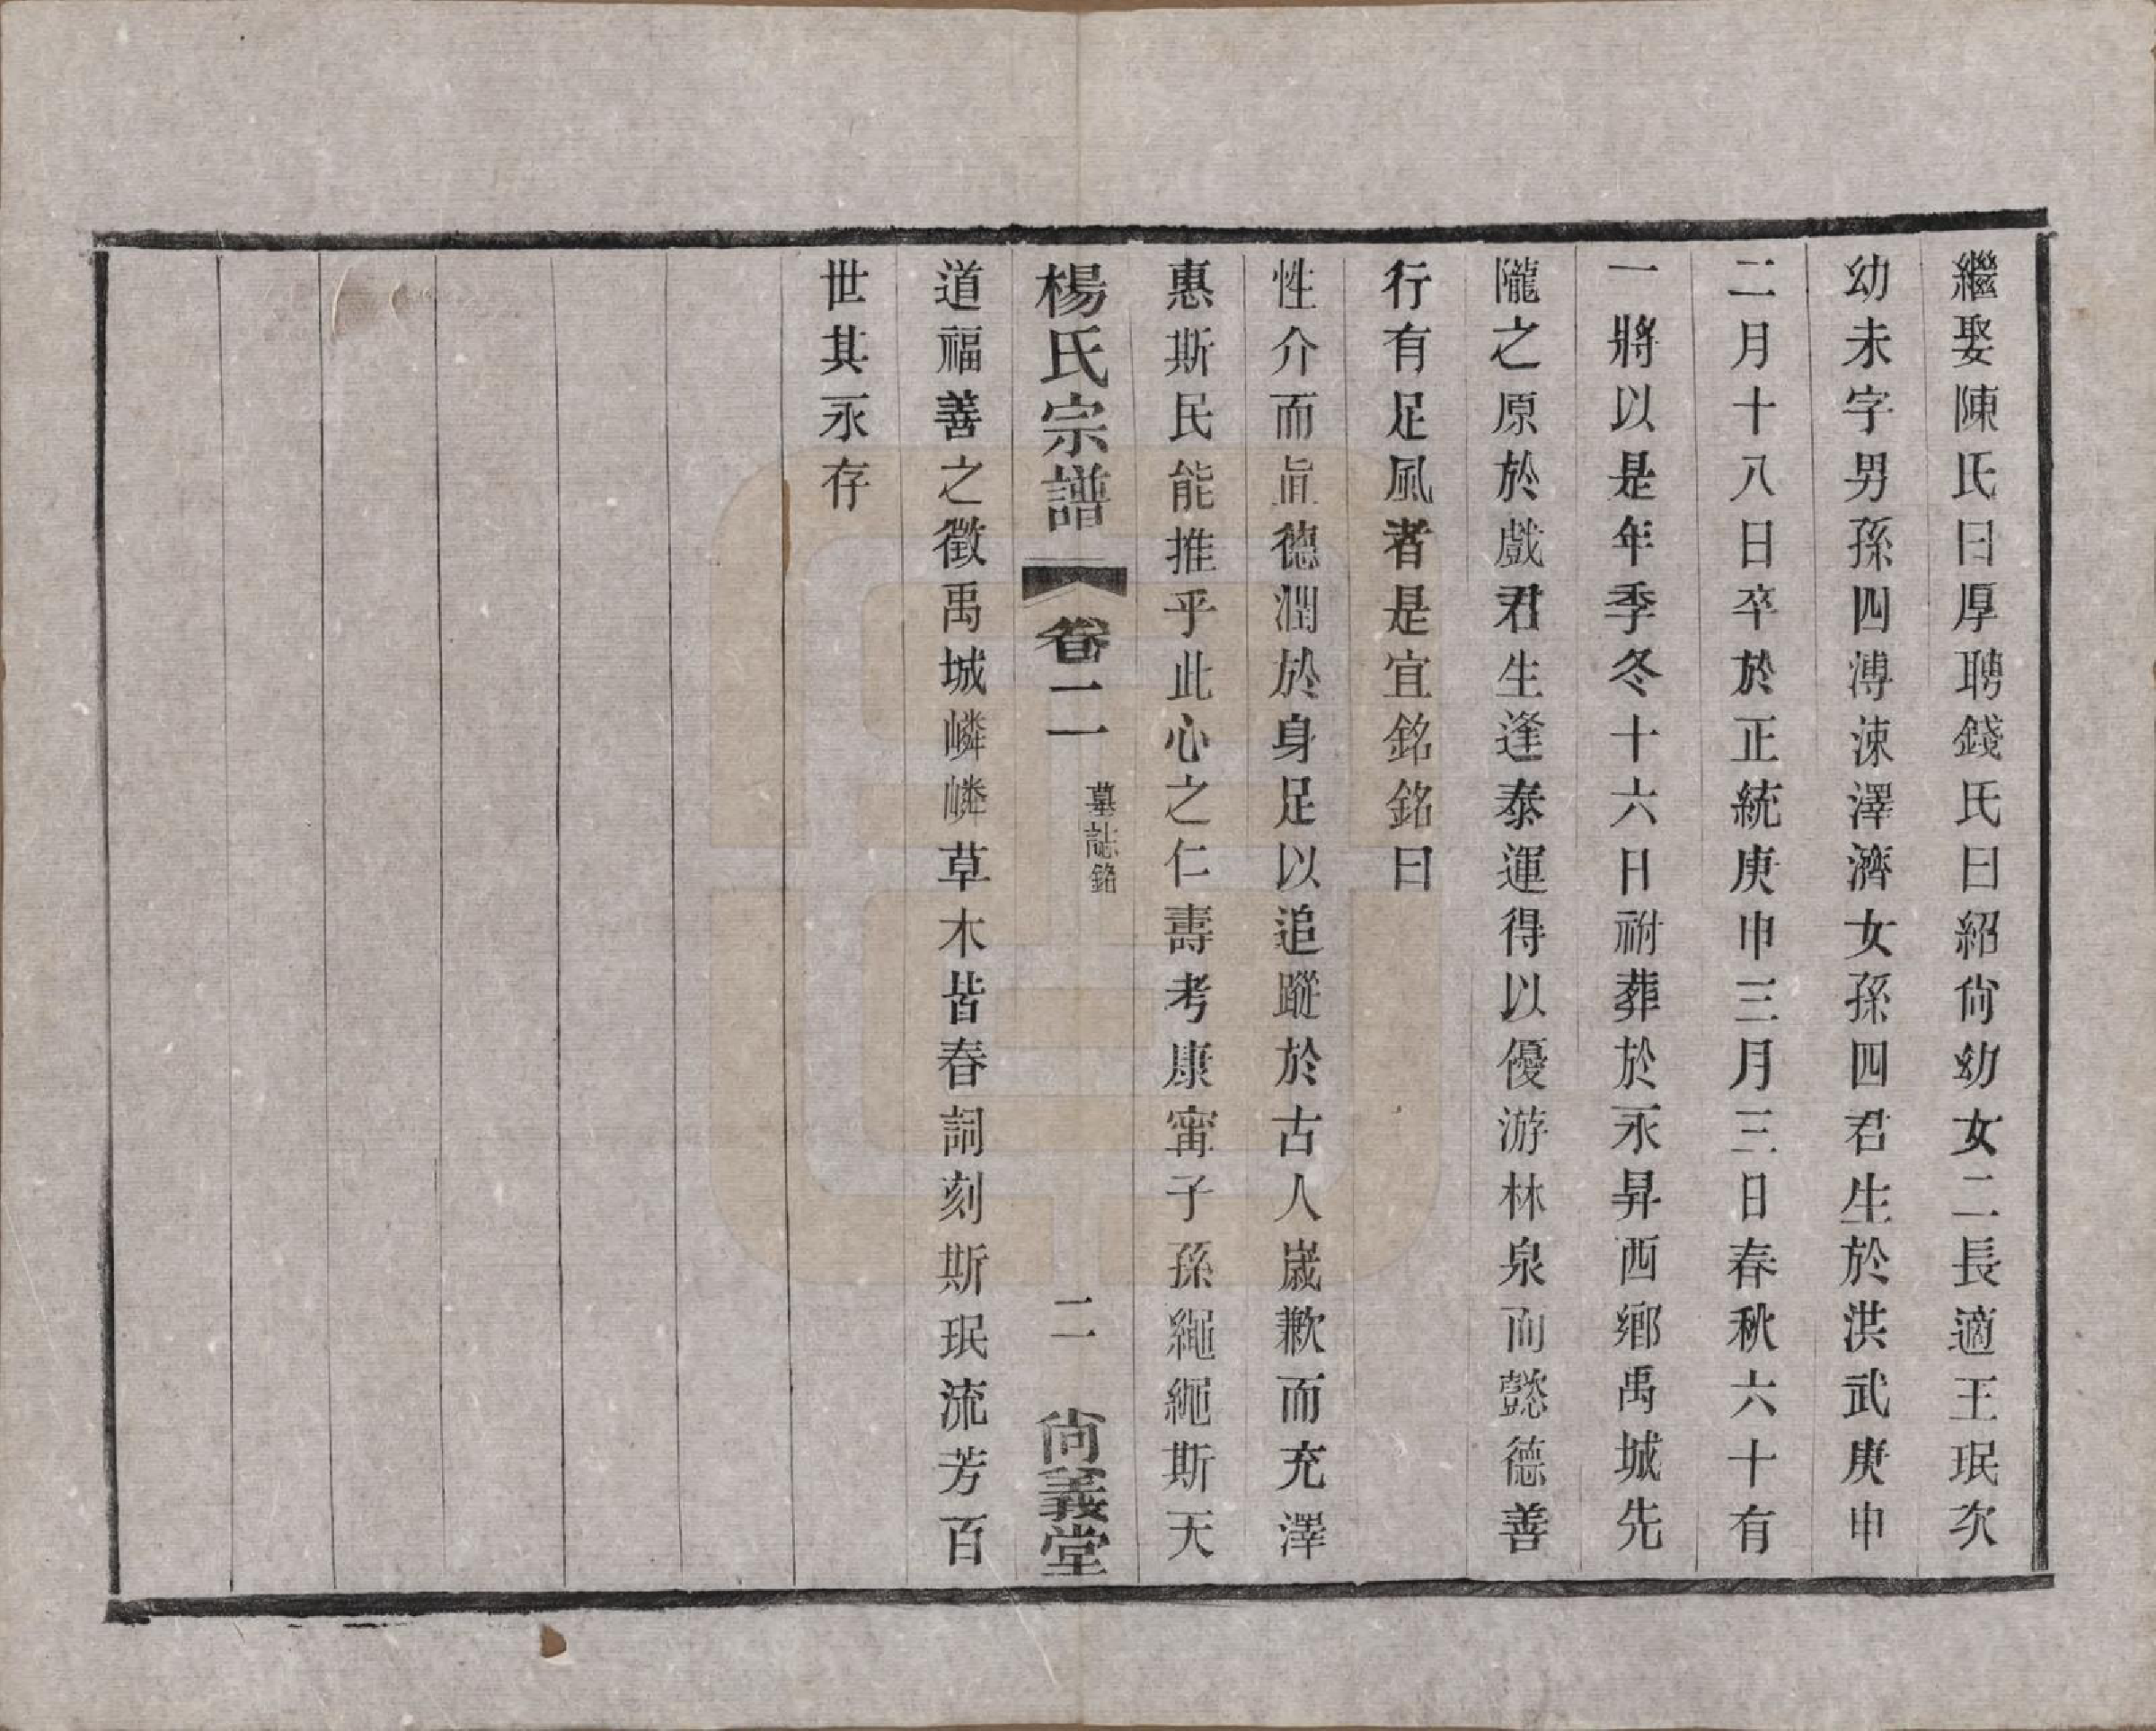 繼娶陳氏曰厚聘錢氏曰紹尙幼女二長適王珉次
幼未字男孫四溥涑澤濟女孫四君生於洪武庚申
二月十八日卒於正統庚申三月三日春秋六十有
一將以是年季冬十六日祔葬於永昇西鄉禹城先
隴之原於戲君生逢泰運得以優游林泉而懿德善
行有足風者是宜銘銘曰
性介而眞德潤於身足以追蹤於古人歲歉而充澤
惠斯民能推乎此心之仁壽考康甯子孫繩繩斯天
楊氏宗譜 卷二 墓誌銘 二 尙義堂
道福善之徵禹城嶙嶙草木皆春詞刻斯珉流芳百
世其永存